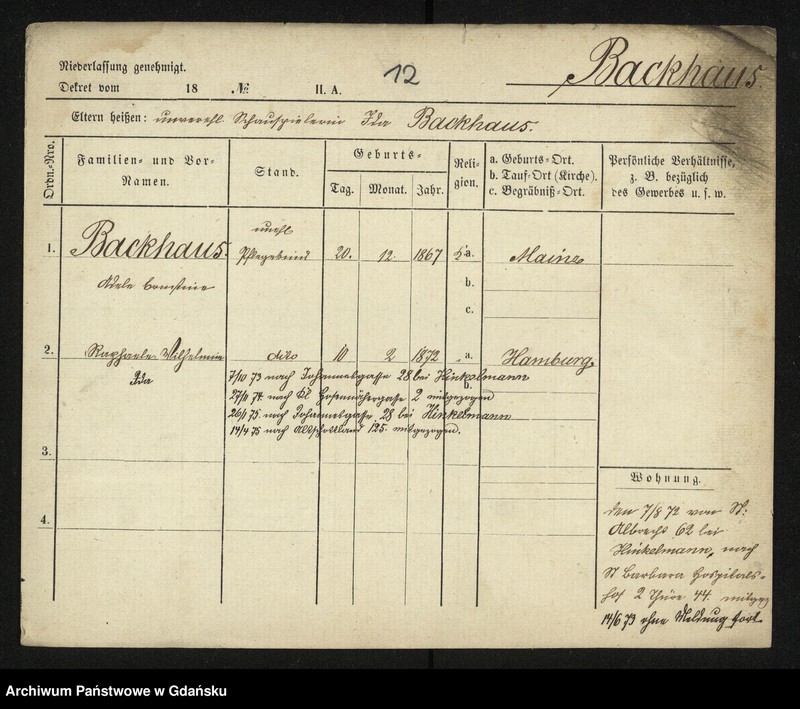 Niederlassung genehmigt.
Dekret vom 18 № II. A.
12
Backhaus
Eltern heißen: unverehl Schauspielerin Ida Backhaus.
Ordn.-Nro.
Familien- und Vor-Namen.
Stand.
Geburts-
Tag. Monat. Jahr.
Religion.
a. Geburts-Ort.
b. Tauf-Ort (Kirche).
c. Begräbniß-Ort.
Persönliche Verhältnisse,
z. B. bezüglich
des Gewerbes u. s. w.
unehl
1. Backhaus. Pflegekind 20. 12. 1867 a. Mainz
Adele
b.
c.
2. Raphaele Wilhelmine dito 10 2 1872 a. Hamburg
Ida
7/10 73 nach Johannesgasse 28 bei Hinkelmann
b.
27/10 74 nach Kl Hosennähergasse 2 mitgezogen
26/1 75 nach Johannesgasse 28 bei Hinkelmann
14/4 75 nach Altschottland 125. mitgezogen.
3.
4.
Wohnung.
den 7/8 72 von St:
Albrecht 62 bei
Hinkelmann, nach
St Barbara Hospitals-
hof 2 Thüre 44. mitgez
14/6 73 ohne Meldung fort
Archiwum Państwowe w Gdańsku